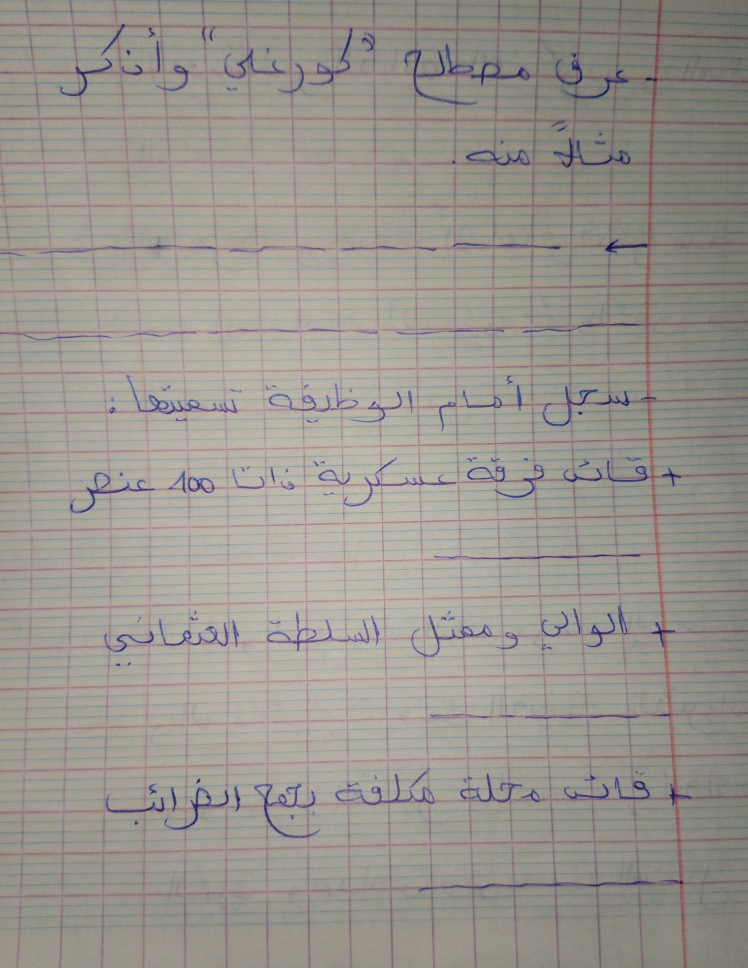 - عرف مصطلح "كورغلي" وأذكر
مثالاً منه.
←
- سجل أمام الوظيفة تسميتها:
+ قائد فرقة عسكرية ذات 100 عنصر
+ الوالي وممثل السلطة العثماني
+ قائد محلة مكلفة بجمع الضرائب